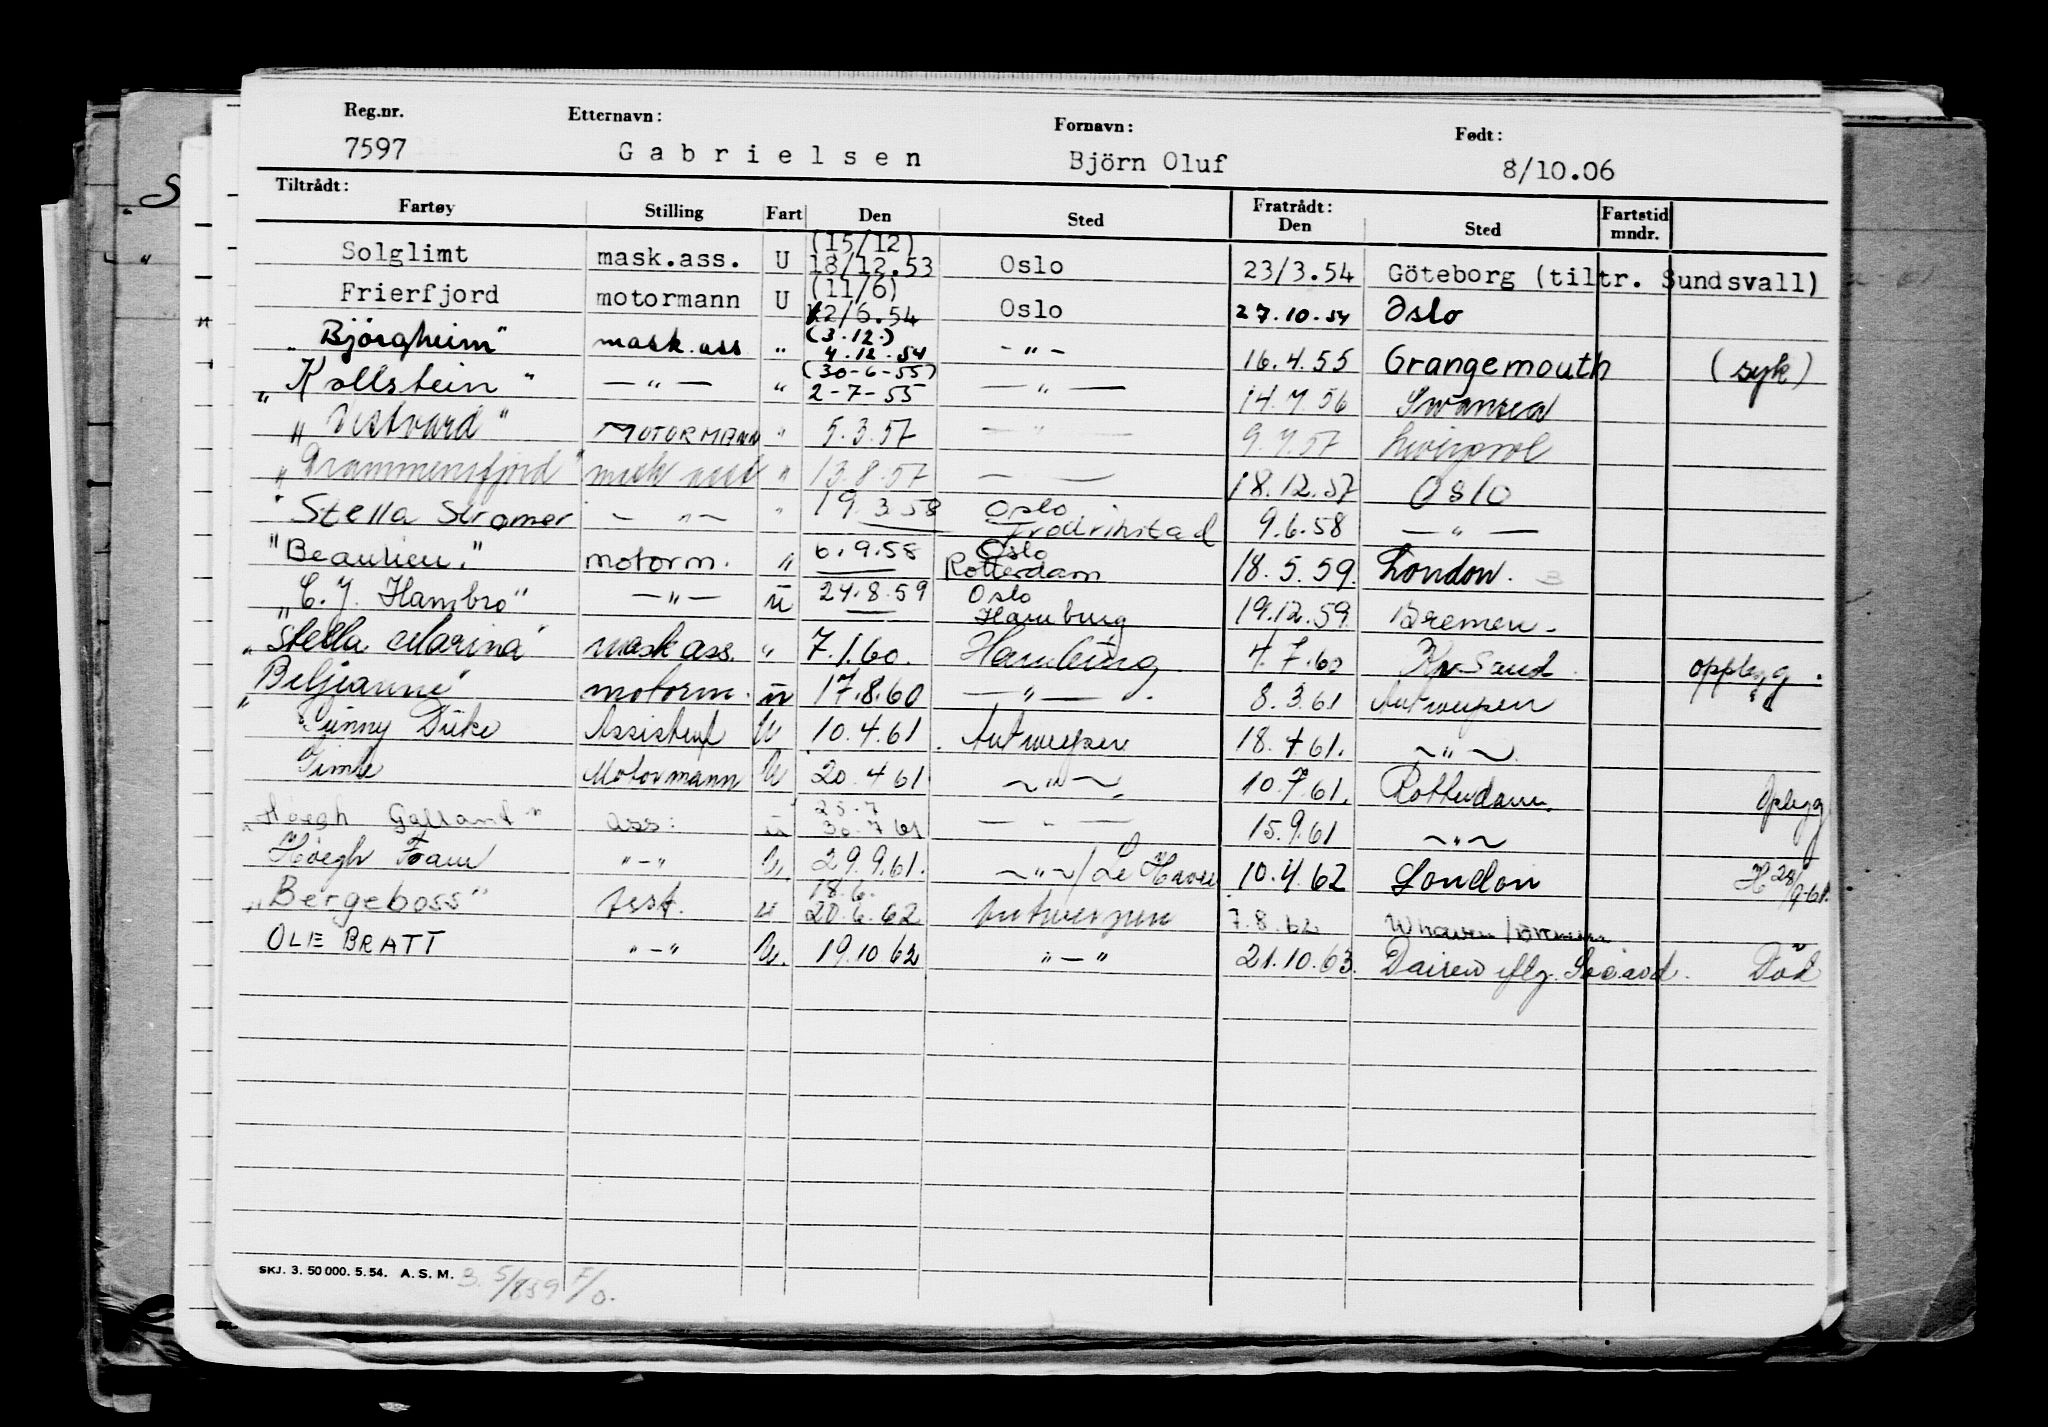 Reg.nr. Etternavn: Fornavn: Født:
7597 Gabrielsen Björn Oluf 8/10.06
Tiltrådt: Fratrådt:
Fartøy Stilling Fart Den Sted Den Sted Fartstid mndr.
Solglimt mask.ass. U (15/12) 18/12.53 Oslo 23/3.54 Göteborg (tiltr. Sundsvall)
Frierfjord motormann U (11/6) 12/6.54 Oslo 27.10.54 Oslo
"Björgheim" mask.ass " (3.12.) 4.12.54 - " - 16.4.55 Grangemouth (syk)
"Kollstein" — " — " (30-6-55) 2-7-55 — " — 14.7.56 Swansea
"Vestvard" MOTORMANN " 5.3.57 — " — 9.7.57 Liverpool
"Drammensfjord" mask ass " 13.8.57 — — 18.12.57 Oslo
"Stella Stromer - " - " 19.3.58 Oslo Fredrikstad 9.6.58 — " —
"Beaulieu." motorm. " 6.9.58 Oslo Rotterdam 18.5.59. London.
"C. J. Hambro" — " — u 24.8.59 Oslo Hamburg 19.12.59 Bremen.
"Stella Marina" mask ass. " 7.1.60. Hamburg 4.7.60 Kr.Sand. opplegg.
"Beljeanne" motorm. u 17.8.60 — " — . 8.3.61 Antwerpen
"Sunny Duke Assistent U 10.4.61. Antwerpen 18.4.61. ~ " ~
Gimle Motormann U 20.4.61 ~ " ~ 10.7.61. Rotterdam. Oplegg
"Høegh Gallant" ass: u 28.7 30.7.61 — " — 15.9.61 ~ " ~
Høegh Foam " - " U. 29.9.61. ~ " ~ / Le Havre 10.4.62 London H 28/9-61.
"Bergeboss" Asst. u 18.6. 20.6.62 Antwerpen 7.8.62 Whaven/Bremen
OLE BRATT " - " U. 19.10.62 " — " 21.10.63. Dairen Død
SKJ. 3. 50 000. 5. 54. A. S. M.